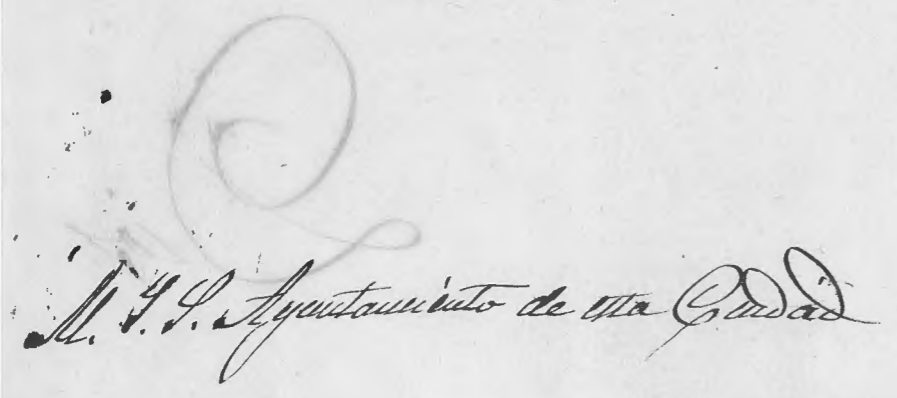 M. I. S. Ayuntamiento de esta Ciudad